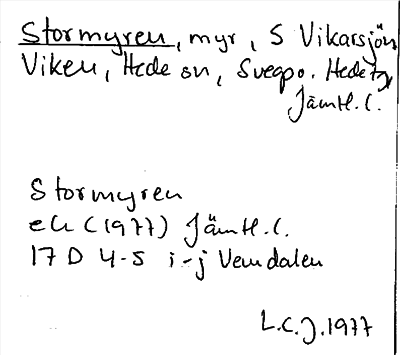 Stormyren, myr, S Vikarsjön
Viken, Hede sn, Svegs po. Hede tg
Jämtl. l.
Stormyren
ek (1977) Jämtl. l.
17 D 4-5 i-j Vemdalen
L.C.J. 1977